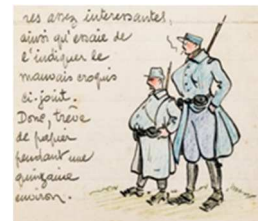 res assez interessantes,
ainsi qu'essaie de
l'indiquer le
mauvais croquis
ci-joint.
Donc, treve
de papier
pendant une
quinzaine
environ.